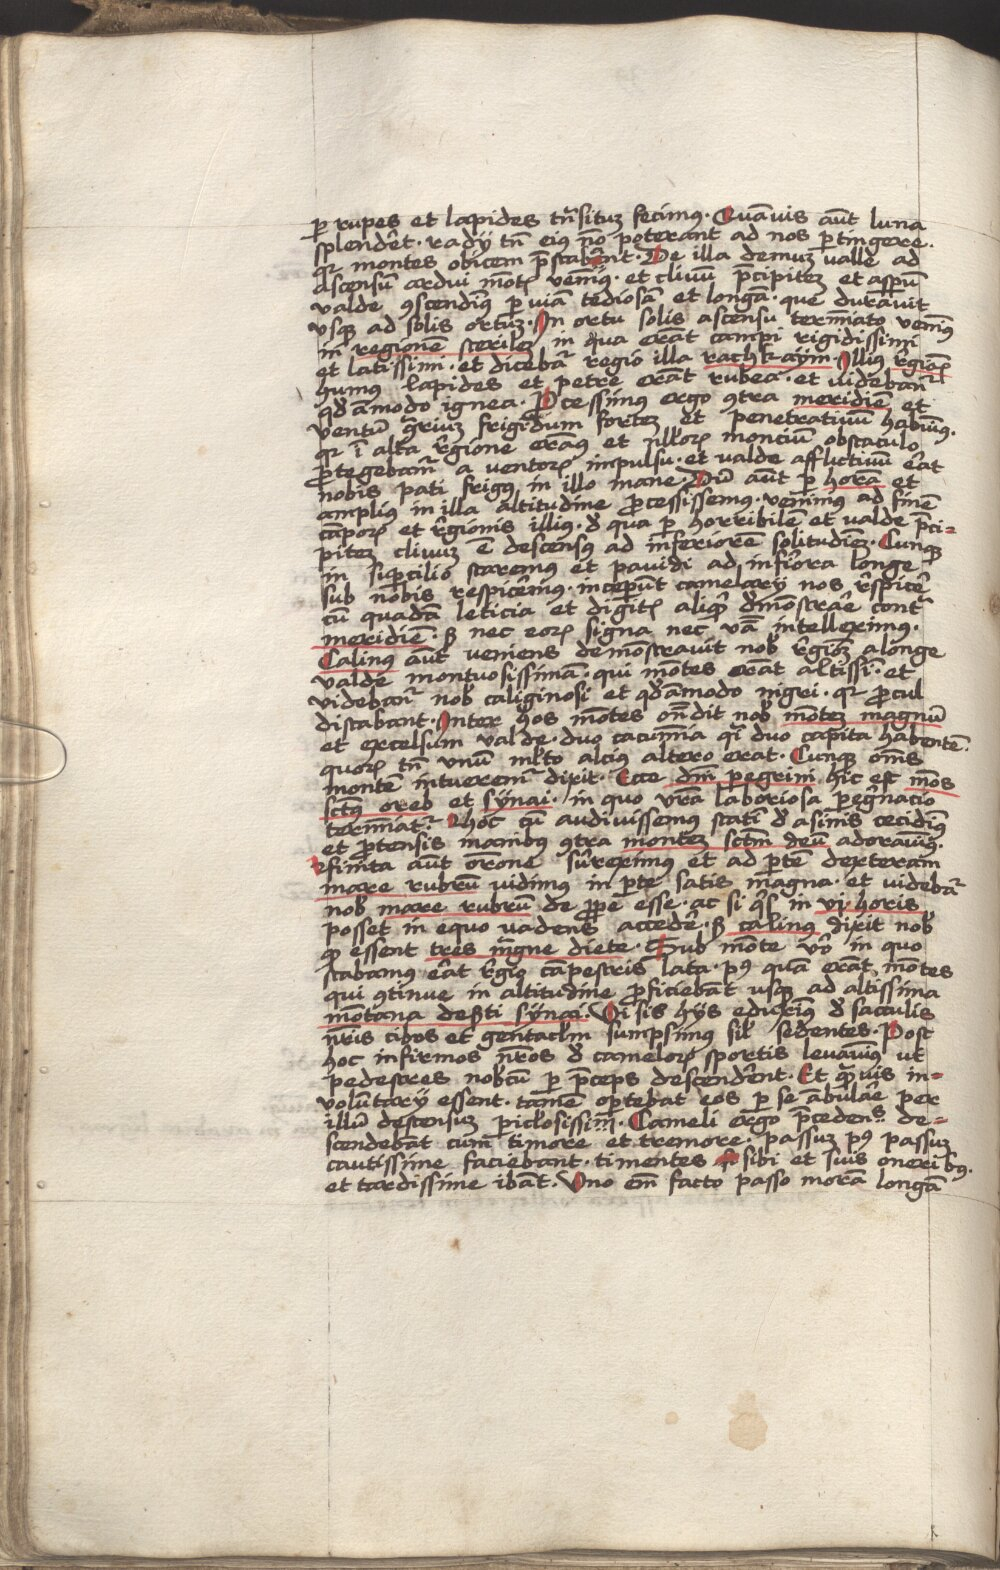 ꝑ rupes et lapides tn̄situꝫ fecimus. Quāuis aūt luna
splendēt. radÿ tn̄ eiꝰ nō poterant ad nos ꝑtingere.
qr montes obicem p̄stabānt. De illa demuꝫ valle ad
Ascensū ardui mōtꝭ venimꝰ. et cliuū p̄cipiteꝫ et aspꝑū
valde ꝯscendimꝰ ꝑ viā tediosā et longā. que durauit
vsqꝫ ad solis ortuꝫ. In ortu solis ascensu term̄ato venimꝰ
in regionē sterileꝫ in qua erāt campi rigidissimi
et latissimi. et dicebat᷑ regio illa rachkaÿm. Illiꝰ r̄gionꝭ
humus lapides et petre erāt rubea. et videban᷑
qd̄āmodo ignea. Ꝓcessimus ergo ꝯtra meridiē et
ventū ꝗ̄riuꝫ frigidum fortem et penetratiuū habuimꝰ.
qr ī alta r̄gione eramꝰ et nllorꝭ montiū obstaculo
ꝓtegebamr̄ a ventorꝭ impulsu. et valde afflictiuū erat
nobis pati frigꝰ in illo mane. Dū aūt ꝑ horā et
amplius in illa altitudine ꝓcessissemus. venimus ad finē
cāporꝭ et r̄gionis illiꝰ. d̄ qua ꝑ horribilē et valde p̄ci=
piteꝫ cliuuꝫ ē descensꝰ ad inferiorē solitudinēꝫ. Cunqꝫ
in suꝑcilio staremus et pauidi ad infīora longe
sub nobis respicerimꝰ. inceperūt camelarÿ nos r̄spicēr
cū quadā leticia et digitꝭ aliqr̄ dmōstrāe contr̄
meridiē. sꝫ nec eorꝭ signa nec vā intelleximus.
Calinꝰ aūt veniens demōstrauit nob̄ r̄gionēꝫ alonge
valde montuosissimā. qui mōtes erāt altissi. et
videban᷑ nob̄ caliginosi et qd̄āmodo nigri. qr ꝓcul
distabant. Inter hos mōtes on̄dit nob̄ mōteꝫ magnū
et excelsum valde. duo cacumina qͥ duo capita habentē.
quorꝭ tn̄ vnū ml̄to alciꝰ altero erat. Cunqꝫ om̄s
montē intuerem᷑ dixit. Ecce dn̄i peregrini hic est mōs
sctꝰ oreb et sÿnai. in quo vr̄a laboriosa peg̃natio
term̄at᷑. Hoc cū audiuissemus statī d̄ asinis cecidimꝰ
et ꝓtensis manibꝰ ꝯtra montem sctm̄ deū adorauimꝰ.
Finita aūt orōne surreximus et ad ꝑtē dexteram
mare rubrū vidimus in ꝑte satis magna. et videbat᷑
nob̄ mare rubrū de ꝓpe esse. ac si qͥs in vj horis
posset in equo vadens accedēr. sꝫ calinꝰ dixit nob̄
ꝙ essent tres mg̃ne diete. Sub mōte v̄o in quo
stabamus erat r̄gio cāpestris lata. pꝰ quā erāt mōtes
qui ꝯtinue in altitudine ꝓficiebāt vsqꝫ ad altissima
mōtana desti sÿnai. Visis hÿs eduximꝰ d̄ sacculis
nr̄is cibos et gentaclm̄ sumpsimus sil̄ sedentes. Post
hoc infirmos nr̄os d̄ camelorꝭ sportis leuauimꝰ vt
pedestres nobcū ꝑ p̄ceps descenderent. Et qͣuis in=
voluntarÿ essent. tamen oportebat eos ꝑ se ābulāre per
illū descensum ꝑiclosissim̄. Cameli ergo p̄cedens de=
scendebāt cum timore et tremore. passum pꝰ passum
cautissime faciebant. timentes sibi et suis oneribꝰ.
et tardissime ibāt. Vno em̄ facto passo morā longā